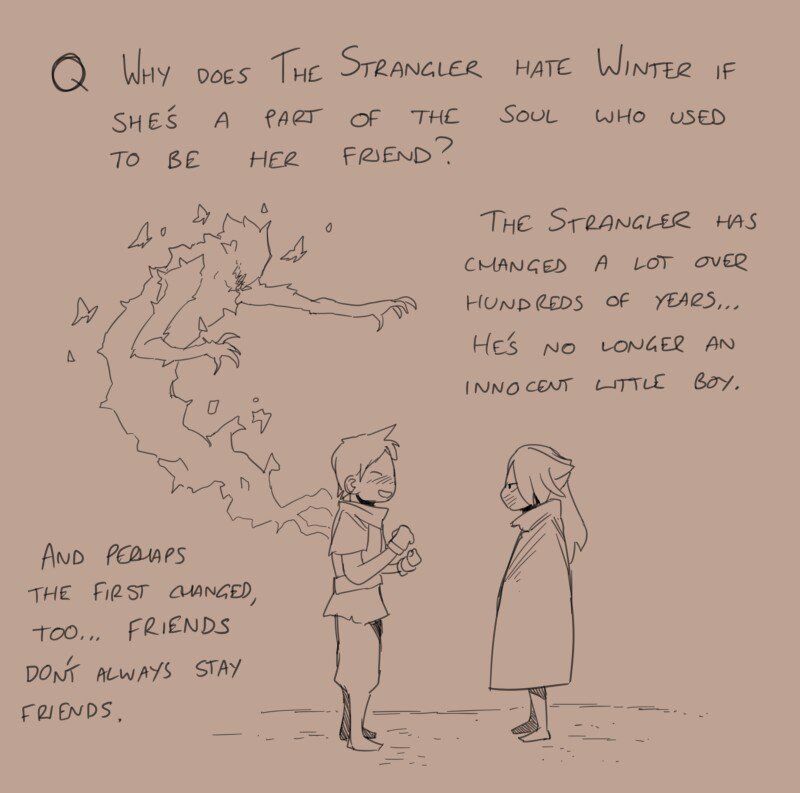 Q WHY DOES THE STRANGLER HATE WINTER IF
SHE'S A PART OF THE SOUL WHO USED
TO BE HER FRIEND?
THE STRANGLER HAS
CHANGED A LOT OVER
HUNDREDS OF YEARS...
HE'S NO LONGER AN
INNOCENT LITTLE BOY.
AND PERHAPS
THE FIRST CHANGED,
TOO... FRIENDS
DON'T ALWAYS STAY
FRIENDS.